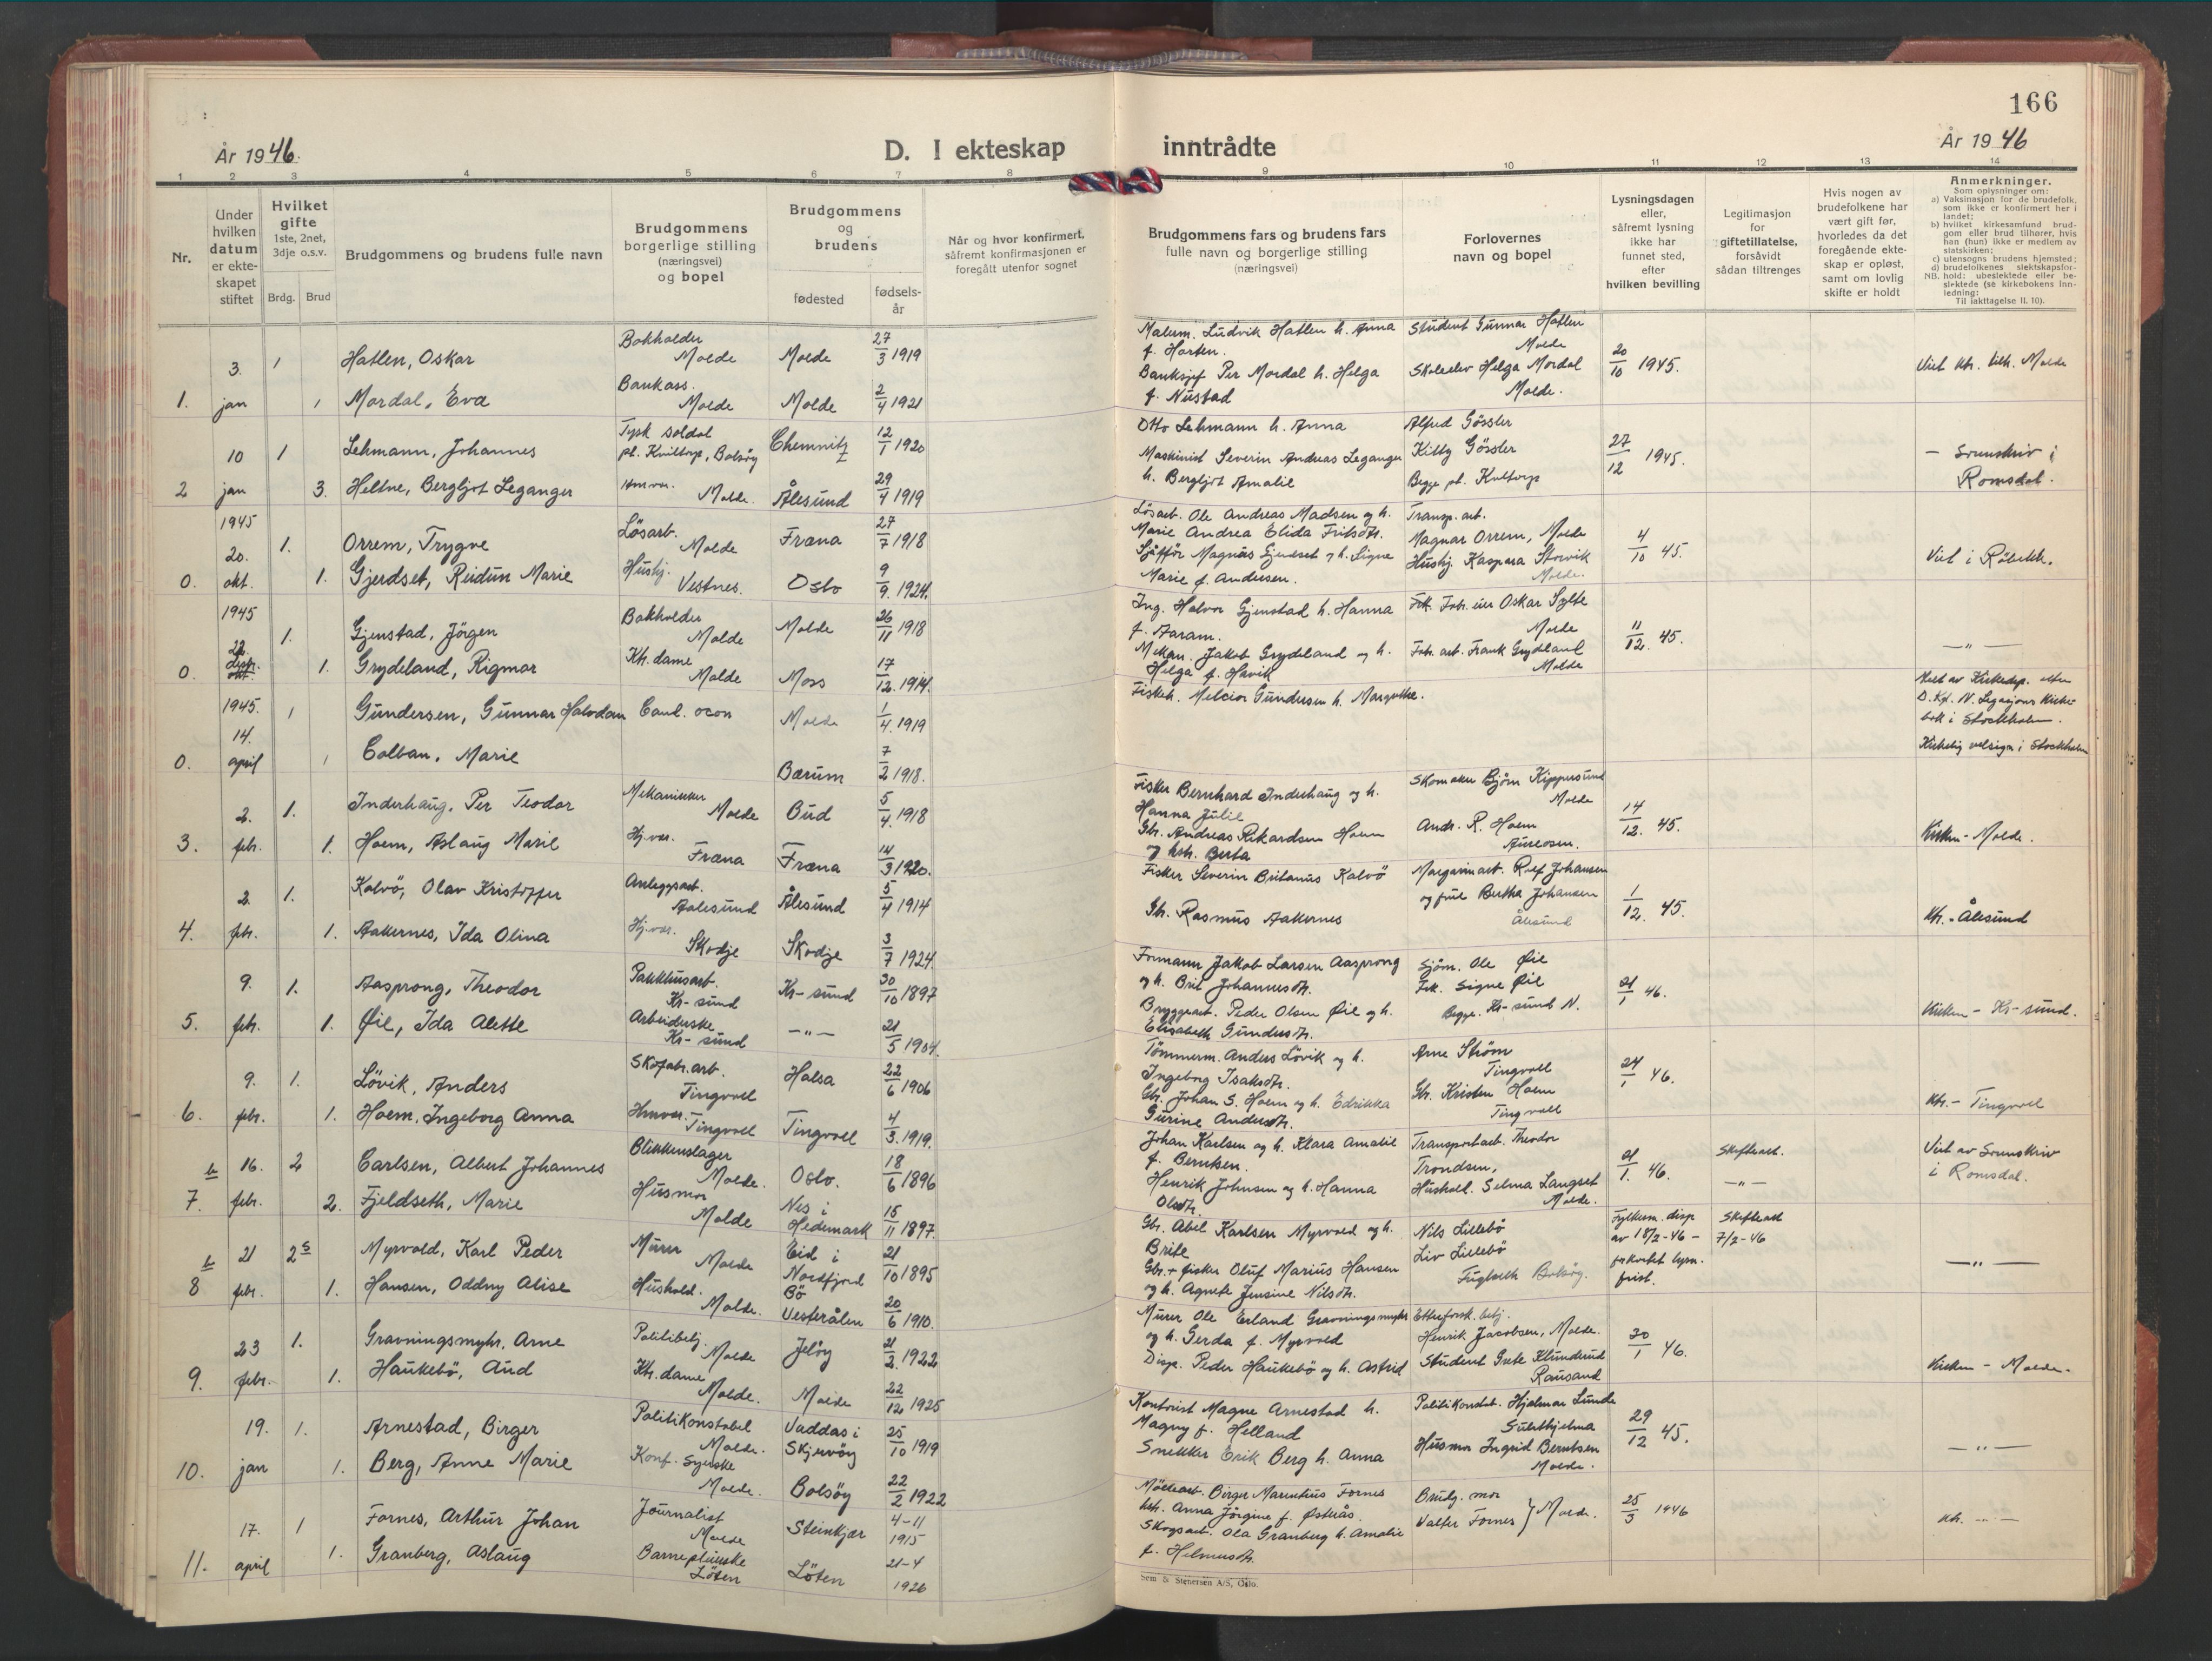 166
År 1946.
D. I ekteskap inntrådte
År 1946
1 2 3 4 5 6 7 8 9 10 11 12 13 14
Nr.
Under hvilken datum er ekteskapet stiftet
Hvilket gifte 1ste, 2net, 3dje o.s.v.
Brdg. Brud
Brudgommens og brudens fulle navn
Brudgommens borgerlige stilling (næringsvei) og bopel
Brudgommens og brudens
fødested
fødselsår
Når og hvor konfirmert, såfremt konfirmasjonen er foregått utenfor sognet
Brudgommens fars og brudens fars fulle navn og borgerlige stilling (næringsvei)
Forlovernes navn og bopel
Lysningsdagen eller, såfremt lysning ikke har funnet sted, efter hvilken bevilling
Legitimasjon for giftetillatelse, forsåvidt sådan tiltrenges
Hvis nogen av brudefolkene har vært gift før, hvorledes da det foregående ekteskap er opløst, samt om lovlig skifte er holdt
Anmerkninger.
Som oplysninger om:
a) Vaksinasjon for de brudefolk, som ikke er konfirmert her i landet;
b) hvilket kirkesamfund brudgom eller brud tilhører, hvis han (hun) ikke er medlem av statskirken;
c) utensogns brudens hjemsted;
d) brudefolkenes slektskapsforhold: ubeslektede eller beslektede (se kirkebokens innledning:
NB. Til iakttagelse II. 10).
1. 3. jan 1 Hatlen, Oskar Bokholder Molde Molde 27/3 1919
1 Mordal, Eva Bankass. Molde Molde 2/4 1921
Malerm. Ludvik Hatlen h. Anna f. Horten.
Banksjef Per Mordal h. Helga f. Nustad
Student Gunnar Hatlen Molde
Skoleelev Helga Mordal Molde.
20/10 1945.
Molde
2 10 jan 1 Lehmann, Johannes Tysk soldat pl. Kviltorp, Bolsøy Chemnitz 12/1 1920
3. Heltne, Bergljot Leganger Molde. Ålesund 29/4 1919
Otto Lehmann h. Anna
Maskinist Severin Andreas Leganger h. Bergljot Amalie
Alfred Gössler
Kitty Gössler
Begge pl. Kviltorp
27/12 1945.
– Sorenskriv i Romsdal.
0. 1945 20. okt. 1. Orrem, Trygve Løsarb. Molde Fræna 27/7 1918
1. Gjerdset, Reidun Marie Hushj. Vestnes. Oslo 9/9. 1924.
Løsarb. Ole Andreas Madsen og h. Marie Andrea Elida Fritsdtr.
Sjåffør Magnus Gjerdset og h. Signe Marie f. Andersen.
Transp. arb. Magnar Orrem, Molde
Hushj. Kaspara Storvik Molde.
4/10 45.
Viet i Røbekk.
0. 1945 1. Gjenstad, Jørgen Bokholder Molde Molde 26/11 1918
1. Grydeland, Rigmor Kt. dame Molde Moss 17/12. 1914.
Ing. Halvor Gjenstad h. Hanna f. Aaram.
Mekan. Jakob Grydeland og h. Helga f. Havik
Oskar Sylte Molde
Fab. arb. Frank Grydeland Molde
11/12. 45.
– " –
0. 1945. 14. april 1 Gundersen, Gunnar Halvdan Cand. oecon Molde 1/4. 1919
1 Colban, Marie Bærum 7/2 1918.
Fiskeh. Melcior Gundersen h. Margrethe.
N. Legasjons Kirkebok i Stockholm.
Kirkelig velsign i Stockholm
3. 2. febr. 1. Inderhaug, Per Teodor Mekanikker Molde Bud 5/4. 1918
1. Hoem, Aslaug Marie Hj.vær. Fræna Fræna 14/3 1920.
Fisker Bernhard Inderhaug og h. Hanna Julie
Gbr. Andreas Rikardsen Hoem og hstr. Berta
Skomaker Bjørn Kippersund Molde
Andr. R. Hoem Aureosen.
14/12. 45.
Kirken – Molde.
4. 2. febr. 1. Kalvø, Olav Kristoffer Anleggsarb. Aalesund Ålesund 5/4 1914
1. Aakernes, Ida Olina Hj.vær. Skodje Skodje 3/7 1924.
Fisker Severin Britanus Kalvø
Gbr. Rasmus Aakernes
Margarinarb. Rolf Johansen og frue Bertha Johansen Ålesund
1/12. 45.
Kk. - Ålesund
5. 9. febr. 1. Aasprong, Theodor Pakkhusarb. Kr-sund Kr-sund 30/10 1897
1. Øie, Ida Alette Arbeiderske Kr-sund – " – 21/5 1904.
Formann Jakob Larsen Aasprong og h. Brit Johannesdtr.
Bryggearb. Peder Olsen Øie og h. Elisabeth Gundersdtr.
Sjøm. Ole Øie
Frk. Signe Øie
Begge Kr-sund N.
21/1 46.
Kirken – Kr-sund.
6. 9. febr. 1. Løvik, Anders Skofabr.arb. Tingvoll Halsa 22/6 1906
1. Hoem, Ingeborg Anna Hmvær. Tingvoll Tingvoll 4/3. 1919.
Tømmerm. Anders Løvik og h. Ingeborg Isaksdtr.
Gbr. Johan S. Hoem og h. Edrikka Gurine Andersdtr.
Arne Strøm Tingvoll
Gbr. Kristen Hoem Tingvoll
24/1 46.
Kk. – Tingvoll
b 7. 16. febr. 2 Carlsen, Albert Johannes Blikkenslager Molde. Oslo. 18/6 1896
2. Fjeldseth, Marie Husmor Molde Nes i Hedemark 15/11 1897.
Johan Karlsen og h. Klara Amalie f. Berntsen.
Henrik Johnsen og h. Hanna Olsdtr.
Transportarb. Theodor Trondsen,
Hushold. Selma Langset Molde.
21/1. 46.
Skifteatt. – " –
Viet av Sorenskriv i Romsdal.
b 8 21 febr. 2 Myrvold, Karl Peder Murer Molde Eid i Nordfjord 21/10 1895
1. Hansen, Oddny Alise Hushold. Molde. Bø Vesterålen 20/6 1910.
Gbr. Abel Karlsen Myrvold og h. Brite
Gbr. + fisker Oluf Marius Hansen og h. Agnete Jensine Nilsdtr.
Nils Lillebø
Liv Lillebø
Fuglseth Bolsøy.
Fylkesm. disp av 18/2-46 – forkortet lysn. frist.
Skifteatt 7/2-46
– " –
9. 23 febr. 1. Gravningsmyhr, Arne Politibetj. Molde Jeløy 21/2. 1922
1. Haukebø, Aud Kt. dame Molde. Molde 22/12 1925
Murer Ole Erland Gravningsmyhr og h. Gerda f. Myrvold
Disp. Peder Haukebø og h. Astrid
Etterforsk. betj. Henrik Jacobsen, Molde.
Student Grete Klunderud Rausand
30/1 46.
Kirken – Molde.
10. 19. jan 1. Arnestad, Birger Politikonstabel Molde. Vaddas i Skjervøy 25/10 1919
1. Berg, Anne Marie Konf. Syerske Molde. Bolsøy 22/2 1922
Kontorist Magne Arnestad h. Magny f. Helland
Snekker Erik Berg h. Anna
Politikonstab. Hjalmar Lunde Sulithjelma
Husmor Ingrid Berntsen Molde.
29/12 45.
– " –
11. 17. april 1 Fornes, Arthur Johan Journalist Molde Steinkjer 4-11 1915
1. Granberg, Aslaug Barnepleierske Løten Løten 21-4 1926
Birger Marentius Fornes hstr. Anna Jørgine f. Østerås.
Skogsarb. Ola Granberg h. Amalie f. Helmersdtr.
Brudg. mor
Valter Fornes } Molde.
25/3 1946
kk. – " –
Sem & Stenersen A/S, Oslo.